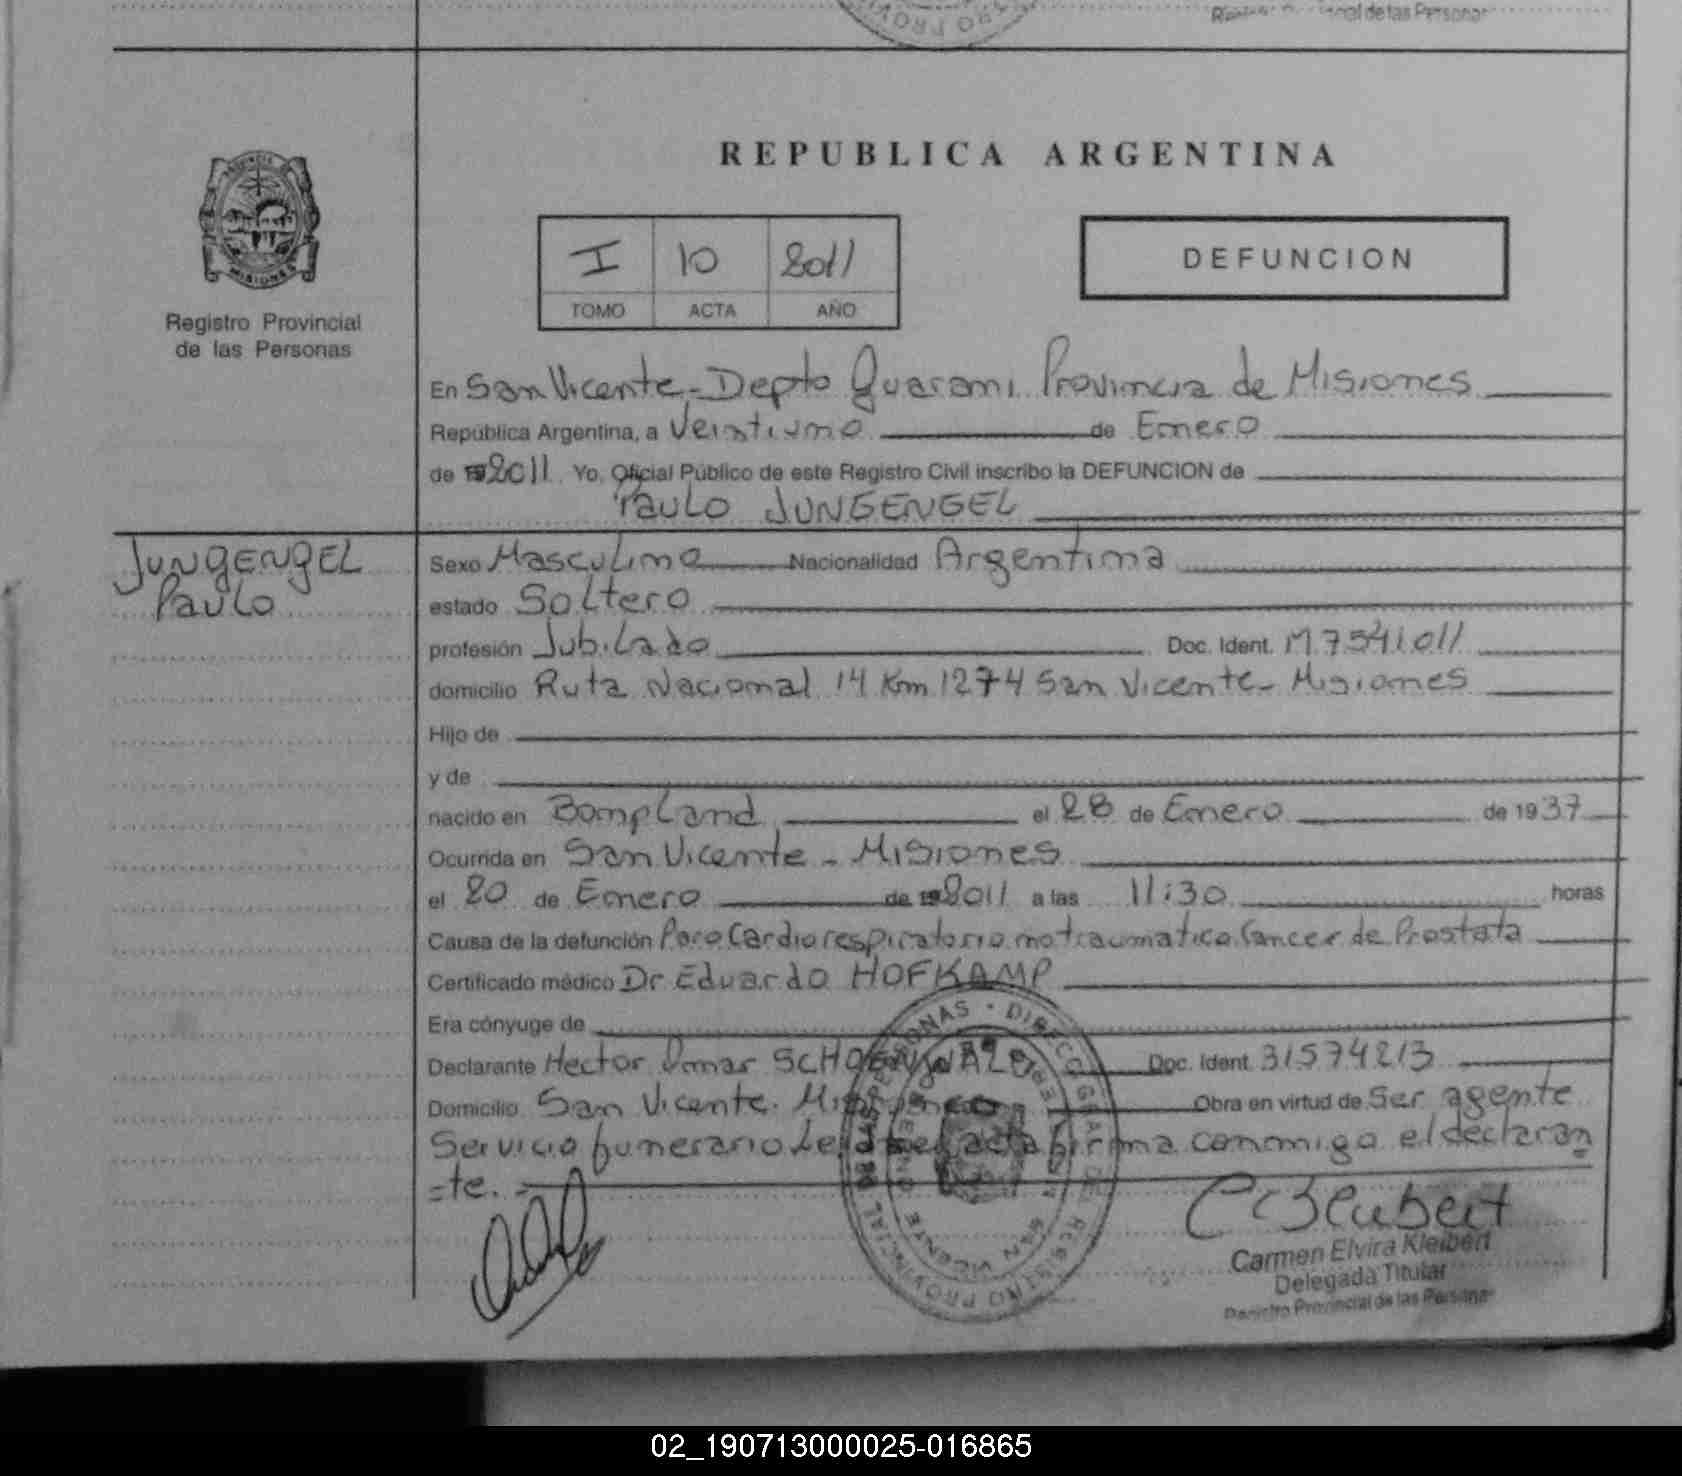 de las Personas
REPUBLICA ARGENTINA
PROVINCIA
MISIONES
Registro Provincial
de las Personas
I 10 2011
TOMO ACTA AÑO
DEFUNCION
En San Vicente - Depto Guarani Provincia de Misiones
República Argentina, a Veintiuno de Enero
de 2011 Yo, Oficial Público de este Registro Civil inscribo la DEFUNCION de
Paulo JUNGENGEL
JUNGENGEL
Paulo
Sexo Masculino Nacionalidad Argentina
estado Soltero
profesión Jubilado Doc. Ident. M.7541011
domicilio Ruta Nacional 14 Km 1274 San Vicente - Misiones
Hijo de
y de
nacido en Bompland el 28 de Enero de 1937
Ocurrida en San Vicente - Misiones
el 20 de Enero de 2011 a las 11:30 horas
Causa de la defunción Paro Cardiorespiratorio no traumatico Cancer de Prostata
Certificado médico Dr Eduardo HOFKAMP
Era cónyuge de
Declarante Hector Omar SCHOENWALD Doc. Ident. 31574213
Domicilio San Vicente. Misiones Obra en virtud de Ser agente
Servicio funerario Leida el acta firma conmigo el declaran
=te.=
DIRECC GRAL DEL REGISTRO PROVINCIAL DE LAS PERSONAS
SAN VICENTE
CEKleubert
Carmen Elvira Kleibert
Delegada Titular
Registro Provincial de las Personas
02_190713000025-016865